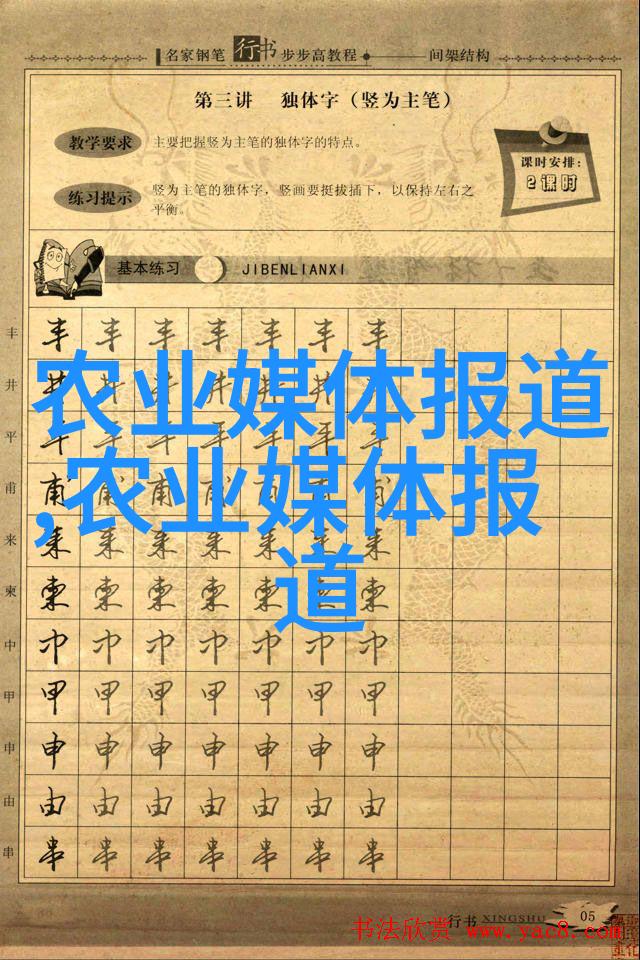 名家钢笔 行书 步步高教程 间架结构
第三讲 独体字（竖为主笔）
教学要求 主要把握竖为主笔的独体字的特点。
课时安排：
2课时
练习提示 竖为主笔的独体字，竖画要挺拔插下，以保持左右之
平衡。
基本练习 JIBENLIANXI
丰 丰 丰 丰 丰 丰 丰 丰
井 井 井 井 井 井 井 井
农业媒体报道
平 平 平 平 平 平 平 平
甫 甫 甫 甫 甫 甫 甫 甫
,农业媒体报
来 来 来 来 来 来 来 来
道
柬 柬 柬 柬 柬 柬 柬
中 中 中 中 中 中 中 中
甲 甲 甲 甲 甲 甲 甲 甲
申 申 申 申 申 申 申 申
由 由 由 由 由 由 由 由
串 串 串 串 串 串 串 串
行书 XINGSHU 05
书法欣赏 www.yac8.com